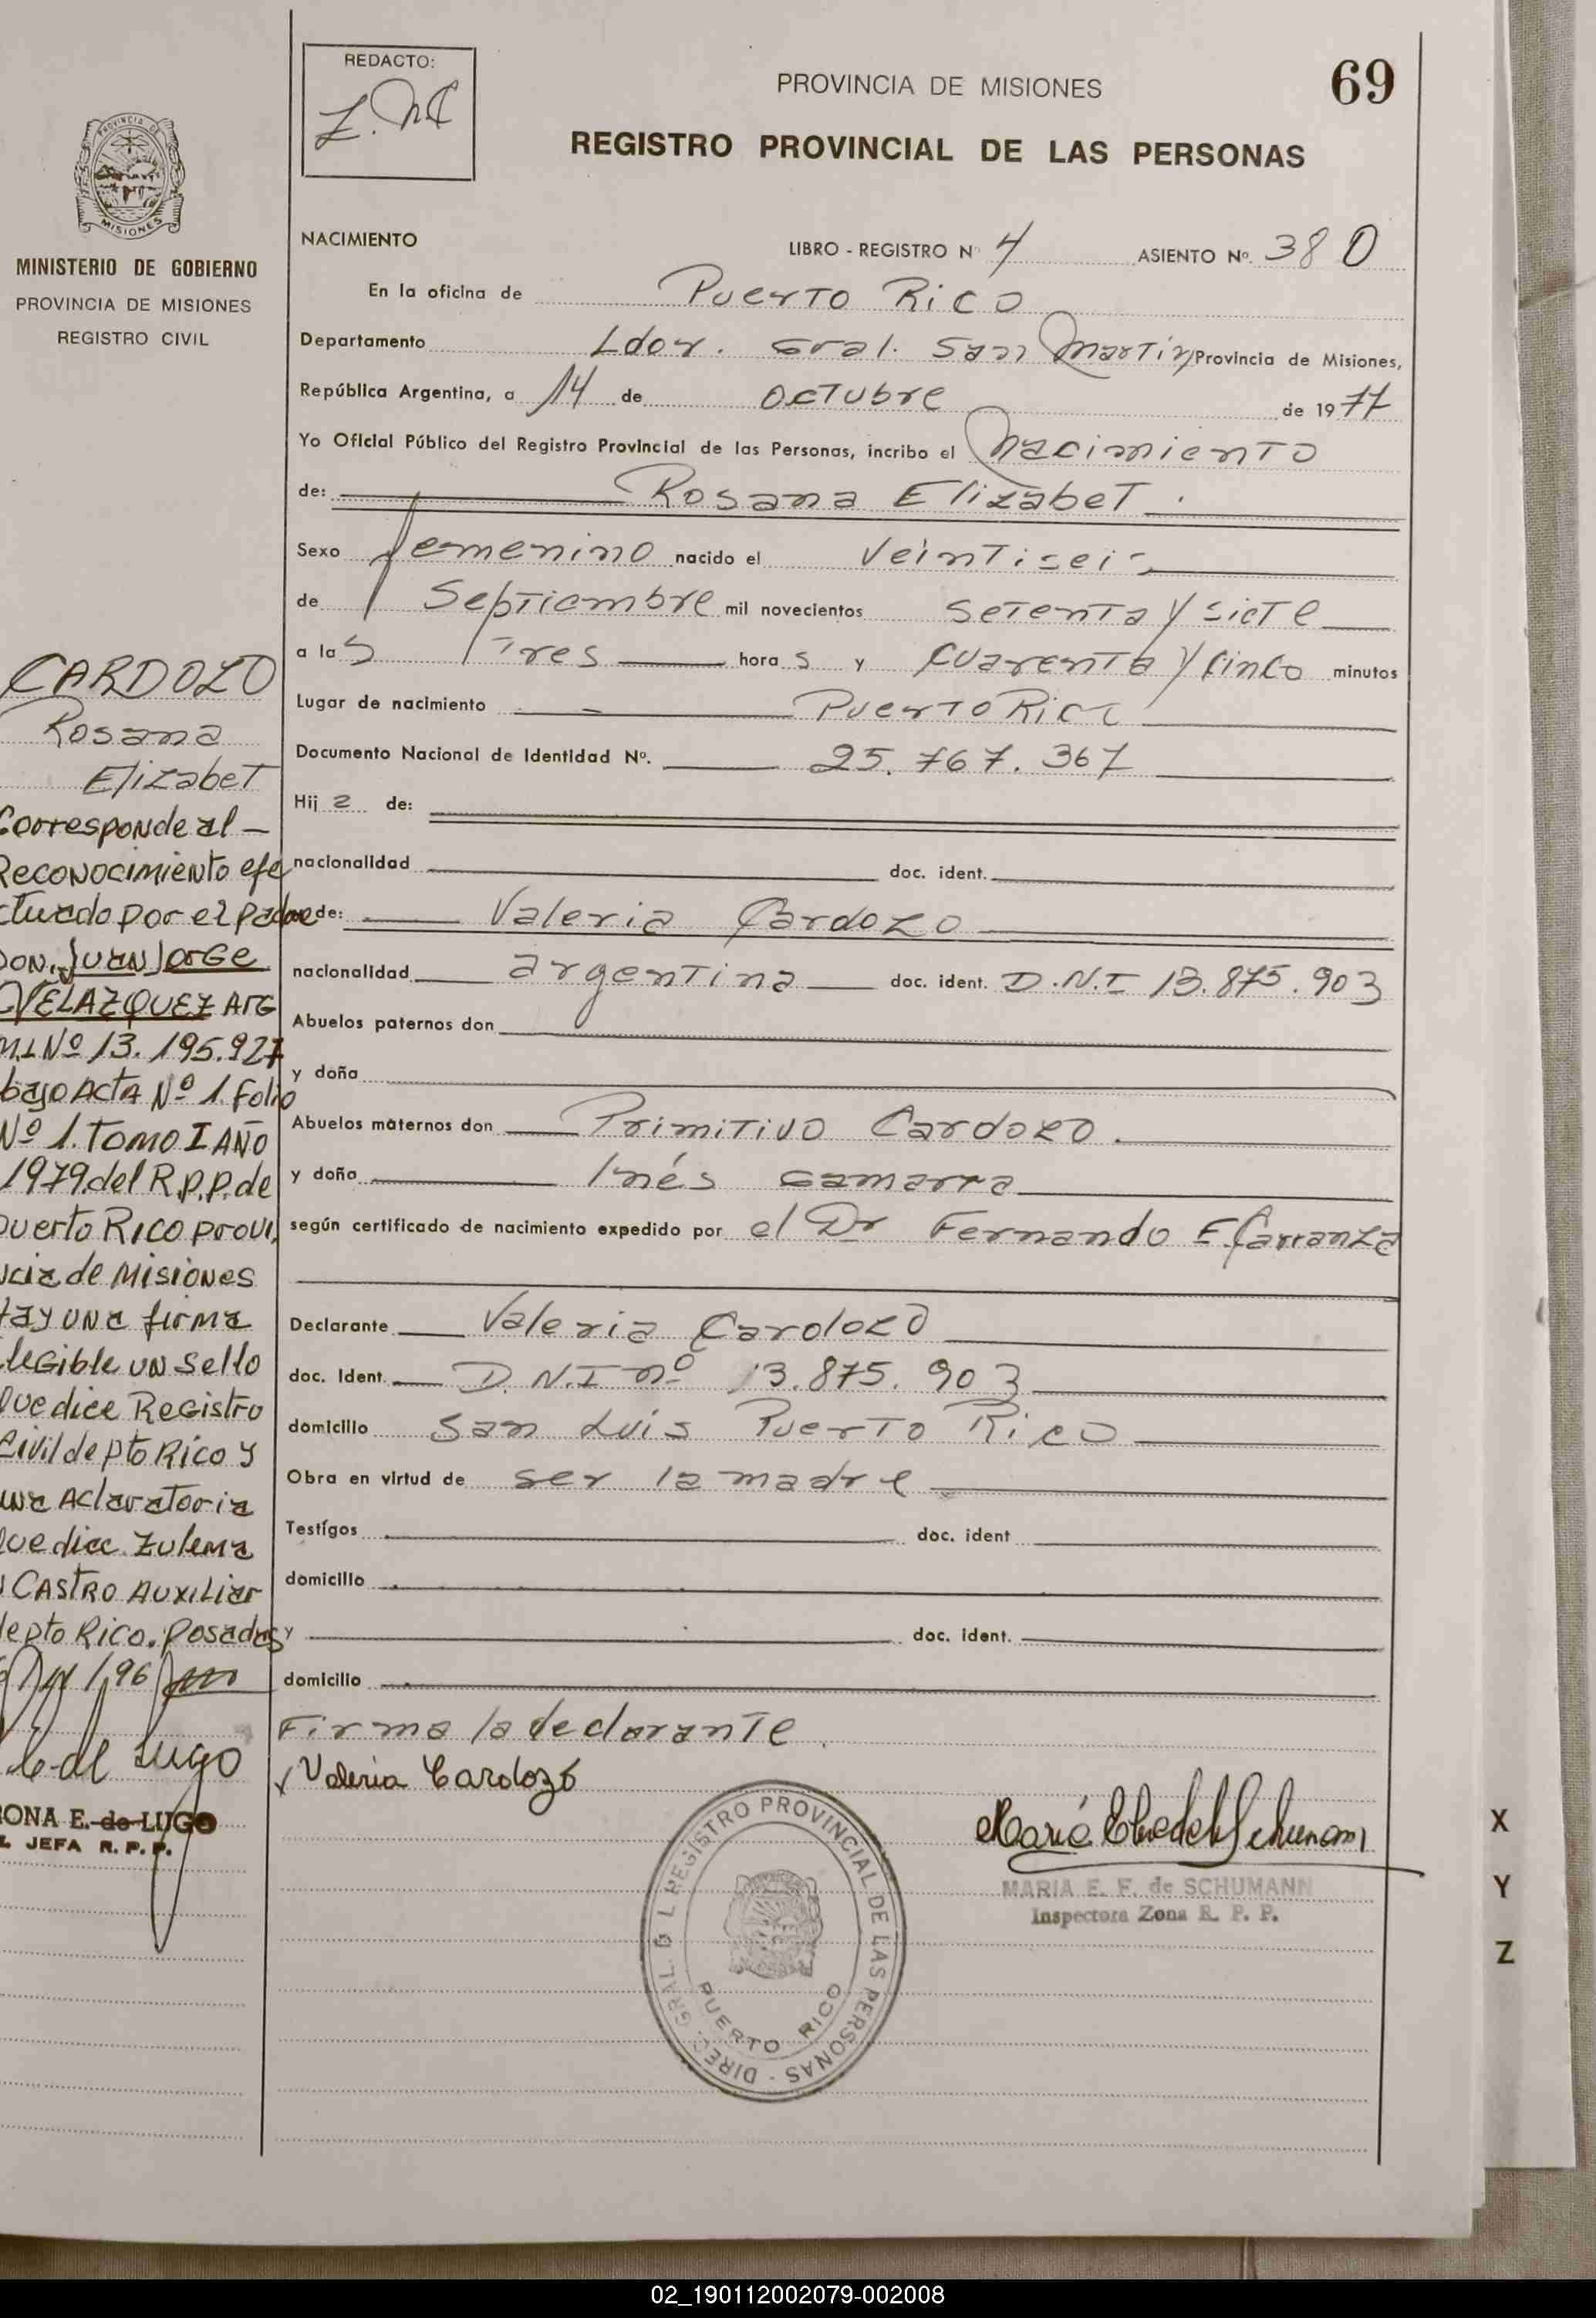 REDACTO:
Z. N C
PROVINCIA DE MISIONES
69
REGISTRO PROVINCIAL DE LAS PERSONAS
PROVINCIA DE
MISIONES
MINISTERIO DE GOBIERNO
PROVINCIA DE MISIONES
REGISTRO CIVIL
NACIMIENTO LIBRO - REGISTRO Nº 4 ASIENTO Nº. 380
En la oficina de Puerto Rico
Departamento Ldor. Gral. San Martín Provincia de Misiones,
República Argentina, a 14 de Octubre de 1977
Yo Oficial Público del Registro Provincial de las Personas, incribo el Nacimiento
de: Rosana Elizabet.
Sexo femenino nacido el Veintiseis
de Septiembre mil novecientos setenta y siete
a las Tres horas y cuarenta y cinco minutos
Lugar de nacimiento Puerto Rico
Documento Nacional de Identidad Nº. 25.767.367
Hija de:
nacionalidad doc. ident.
de: Valeria Cardozo
nacionalidad argentina doc. ident. D.N.I 13.875.903
Abuelos paternos don
y doña
Abuelos maternos don Primitivo Cardozo.
y doña Inés Gamarra
según certificado de nacimiento expedido por el Dr Fernando E. Carranza
Declarante Valeria Cardozo
doc. Ident. D.N.I nº 13.875.903
domicilio San Luis Puerto Rico
Obra en virtud de ser la madre
Testigos doc. ident
domicilio
y doc. ident.
domicilio
Firma la declarante.
Valeria Cardozo
DIREC. GRAL. DEL REGISTRO PROVINCIAL DE LAS PERSONAS
PUERTO RICO
MARIA E. F. de SCHUMANN
Inspectora Zona R. P. P.
CARDOZO
Rosana
Elizabet
Corresponde al
Reconocimiento efe
ctuado por el padre
DON. JUAN JorGe
VELAZQUEZ ArG
M.I Nº 13.195.927
bajo Acta Nº 1. Folio
Nº 1. TOMO I AÑO
1979 del R.P.P. de
Puerto Rico provi
ncia de Misiones
Hay una firma
ilegible un sello
que dice Registro
Civil de pto Rico y
una Aclaratoria
que dice Zulema
N CASTRO AUXILIAR
de pto Rico. Posadas
de Lugo
RONA E. de LUGO
JEFA R. P. P.
X
Y
Z
02_190112002079-002008